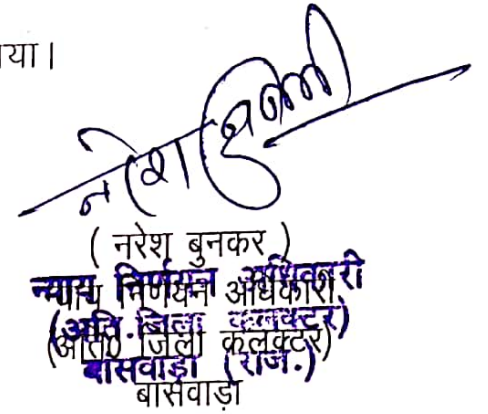 या।
नरेश बुनकर
( नरेश बुनकर )
न्याय निर्णयन अधिकारी
न्याय निर्णयन अधिकारी
(अति. जिला कलक्टर)
(अति० जिला कलक्टर)
बांसवाड़ा (राज.)
बांसवाड़ा